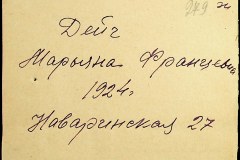 Дейч
Марьяна Францевна
1924г.
Наваринская 27